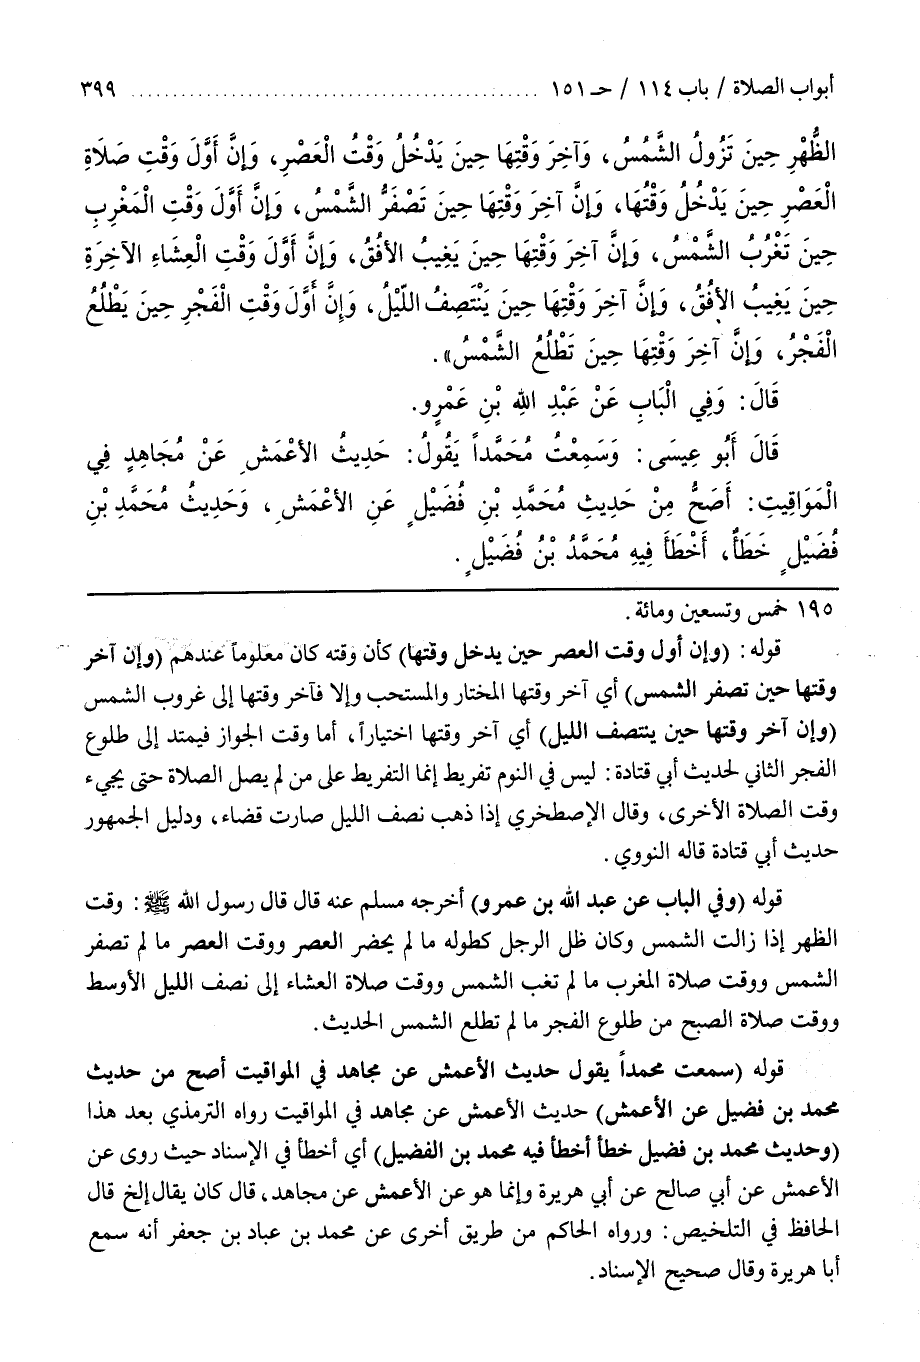 أبواب الصلاة / باب ١١٤ / حـ ١٥١ ................................................ ٣٩٩
الظُّهْرِ حِينَ تَزُولُ الشَّمْسُ، وَآخِرَ وَقْتِهَا حِينَ يَدْخُلُ وَقْتُ الْعَصْرِ، وَإِنَّ أَوَّلَ وَقْتِ صَلَاةِ
الْعَصْرِ حِينَ يَدْخُلُ وَقْتُهَا، وَإِنَّ آخِرَ وَقْتِهَا حِينَ تَصْفَرُّ الشَّمْسُ، وَإِنَّ أَوَّلَ وَقْتِ الْمَغْرِبِ
حِينَ تَغْرُبُ الشَّمْسُ، وَإِنَّ آخِرَ وَقْتِهَا حِينَ يَغِيبُ الأفُقُ، وَإِنَّ أَوَّلَ وَقْتِ الْعِشَاءِ الآخِرَةِ
حِينَ يَغِيبُ الأفُقُ، وَإِنَّ آخِرَ وَقْتِهَا حِينَ يَنْتَصِفُ اللَّيْلُ، وَإِنَّ أَوَّلَ وَقْتِ الْفَجْرِ حِينَ يَطْلُعُ
الْفَجْرُ، وَإِنَّ آخِرَ وَقْتِهَا حِينَ تَطْلُعُ الشَّمْسُ».
قَالَ: وَفِي الْبَابِ عَنْ عَبْدِ اللهِ بْنِ عَمْرٍو.
قَالَ أَبُو عِيسَى: وَسَمِعْتُ مُحَمَّداً يَقُولُ: حَدِيثُ الأعْمَشِ عَنْ مُجَاهِدٍ فِي
الْمَوَاقِيتِ: أَصَحُّ مِنْ حَدِيثِ مُحَمَّدِ بْنِ فُضَيْلٍ عَنِ الأعْمَشِ، وَحَدِيثُ مُحَمَّدِ بْنِ
فُضَيْلٍ خَطَأٌ، أَخْطَأَ فِيهِ مُحَمَّدُ بْنُ فُضَيْلٍ.
١٩٥ خمس وتسعين ومائة.
قوله: (وإن أول وقت العصر حين يدخل وقتها) كأن وقته كان معلوماً عندهم (وإن آخر
وقتها حين تصفر الشمس) أي آخر وقتها المختار والمستحب وإلا فآخر وقتها إلى غروب الشمس
(وإن آخر وقتها حين ينتصف الليل) أي آخر وقتها اختياراً، أما وقت الجواز فيمتد إلى طلوع
الفجر الثاني لحديث أبي قتادة: ليس في النوم تفريط إنما التفريط على من لم يصل الصلاة حتى يجيء
وقت الصلاة الأخرى، وقال الإصطخري إذا ذهب نصف الليل صارت قضاء، ودليل الجمهور
حديث أبي قتادة قاله النووي.
قوله (وفي الباب عن عبد الله بن عمرو) أخرجه مسلم عنه قال قال رسول الله ﷺ: وقت
الظهر إذا زالت الشمس وكان ظل الرجل كطوله ما لم يحضر العصر ووقت العصر ما لم تصفر
الشمس ووقت صلاة المغرب ما لم تغب الشمس ووقت صلاة العشاء إلى نصف الليل الأوسط
ووقت صلاة الصبح من طلوع الفجر ما لم تطلع الشمس الحديث.
قوله (سمعت محمداً يقول حديث الأعمش عن مجاهد في المواقيت أصح من حديث
محمد بن فضيل عن الأعمش) حديث الأعمش عن مجاهد في المواقيت رواه الترمذي بعد هذا
(وحديث محمد بن فضيل خطأ أخطأ فيه محمد بن الفضيل) أي أخطأ في الإسناد حيث روى عن
الأعمش عن أبي صالح عن أبي هريرة وإنما هو عن الأعمش عن مجاهد، قال كان يقال إلخ قال
الحافظ في التلخيص: ورواه الحاكم من طريق أخرى عن محمد بن عباد بن جعفر أنه سمع
أبا هريرة وقال صحيح الإسناد.